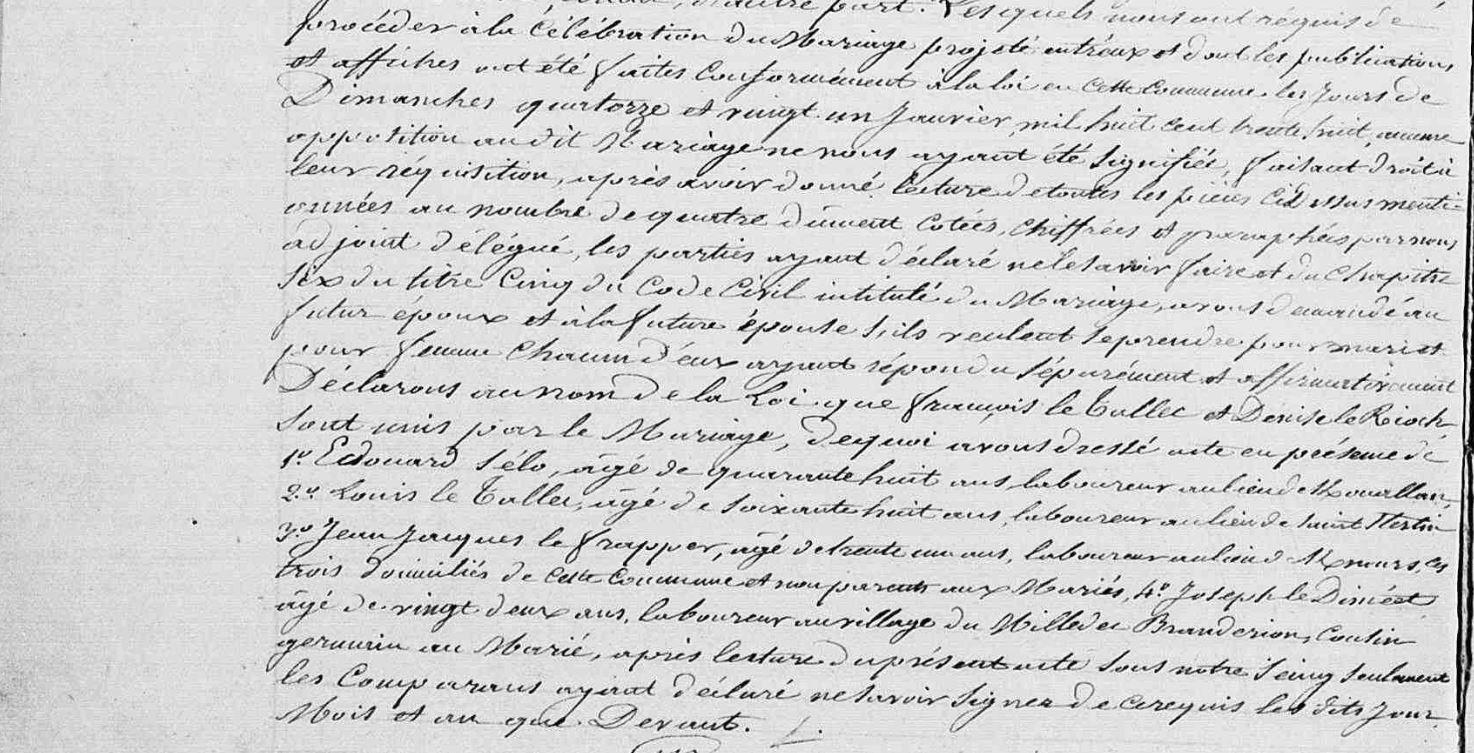 d'autre part. Lesquels nous ont réquis de
procéder à la Célébration du Mariage projeté entr'eux et dont les publications
et affiches ont été faites Conformément à la loi en Cette Commune les Jours de
Dimanches quatorze et vingt un Janvier mil huit cent trente huit, aucune
opposition audit Mariage ne nous ayant été Signifiée, faisant droit à
leur réquisition, après avoir donné lecture de toutes les pièces Cidessus menti-
onnées au nombre de quatre dûment Cotées, Chiffrées et paraphées par nous
adjoint délégué, les parties ayant déclaré ne le Savoir faire et du Chapitre
Six du titre Cinq du Code Civil intitulé du Mariage, avons demandé au
futur époux et à la future épouse S'ils veulent Se prendre pour mari et
pour femme Chacun d'eux ayant répondu Séparément et affirmativement
Déclarons au nom de la Loi que françois le Tallec et Dénise le Rioch
Sont unis par le Mariage, de quoi avons dressé acte en présence de
1º Edouard Sélo, âgé de quarante huit ans, laboureur au lieu de
2º Louis le Tallec, âgé de Soixante huit ans, laboureur au lieu de Saint Sterlin
3º Jean Jacques le frapper, âgé de trente un ans, laboureur au lieu de ces
trois domiciliés de Cette Commune et non parents aux Mariés, 4º Joseph le Diméet
âgé de vingt deux ans, laboureur au village du de Branderion, Cousin
germain au Marié, après lecture du présent acte Sous notre Seing Seulement
les Comparans ayant déclaré ne Savoir Signer de ce requis les dits Jour
Mois et an que Devant.